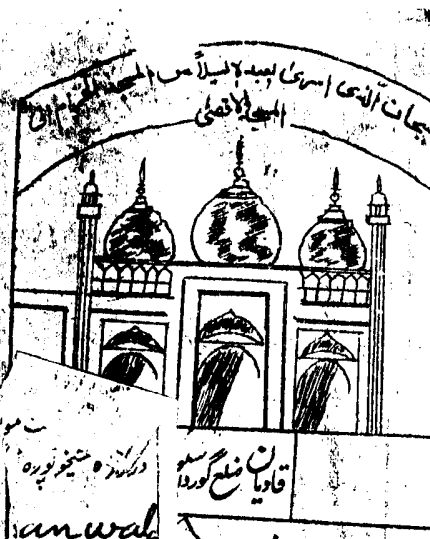 سبحان الذی اسریٰ بعبدہ لیلاً من المسجد الحرام الی
المسجد الاقصیٰ
قادیان ضلع گورداسپور
شیخوپورہ
anwal